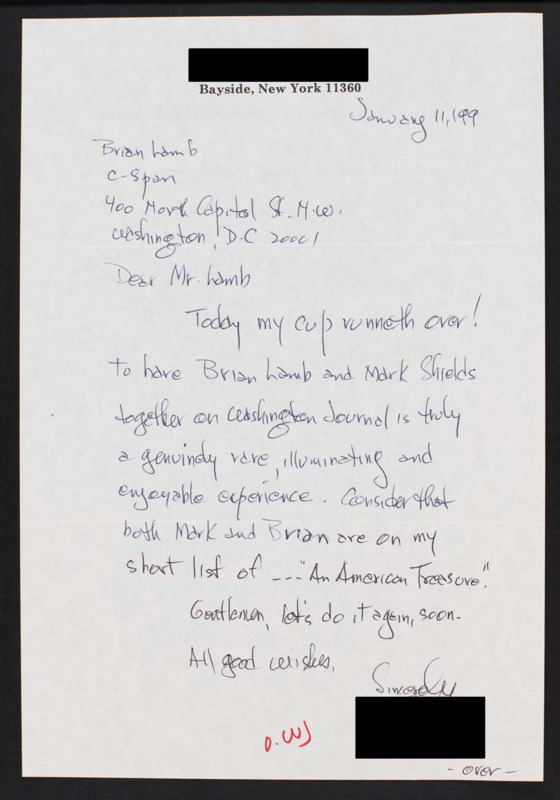 Bayside, New York 11360
January 11, 199
Brian Lamb
C-Span
400 North Capitol St. N.W.
Washington, D.C 20001
Dear Mr. Lamb
Today my cup runneth over!
To have Brian Lamb and Mark Shields
together on Washington Journal is truly
a genuinely rare, illuminating and
enjoyable experience. Consider that
both Mark and Brian are on my
short list of --- "An American Treasure".
Gentlemen, let's do it again, soon.
All good wishes,
Sincerely
- over -